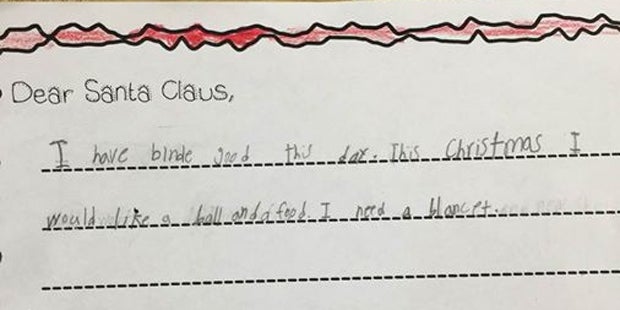 Dear Santa Claus,
I have binde good this dar. This Christmas I
would like a ball and a food. I need a blancet.